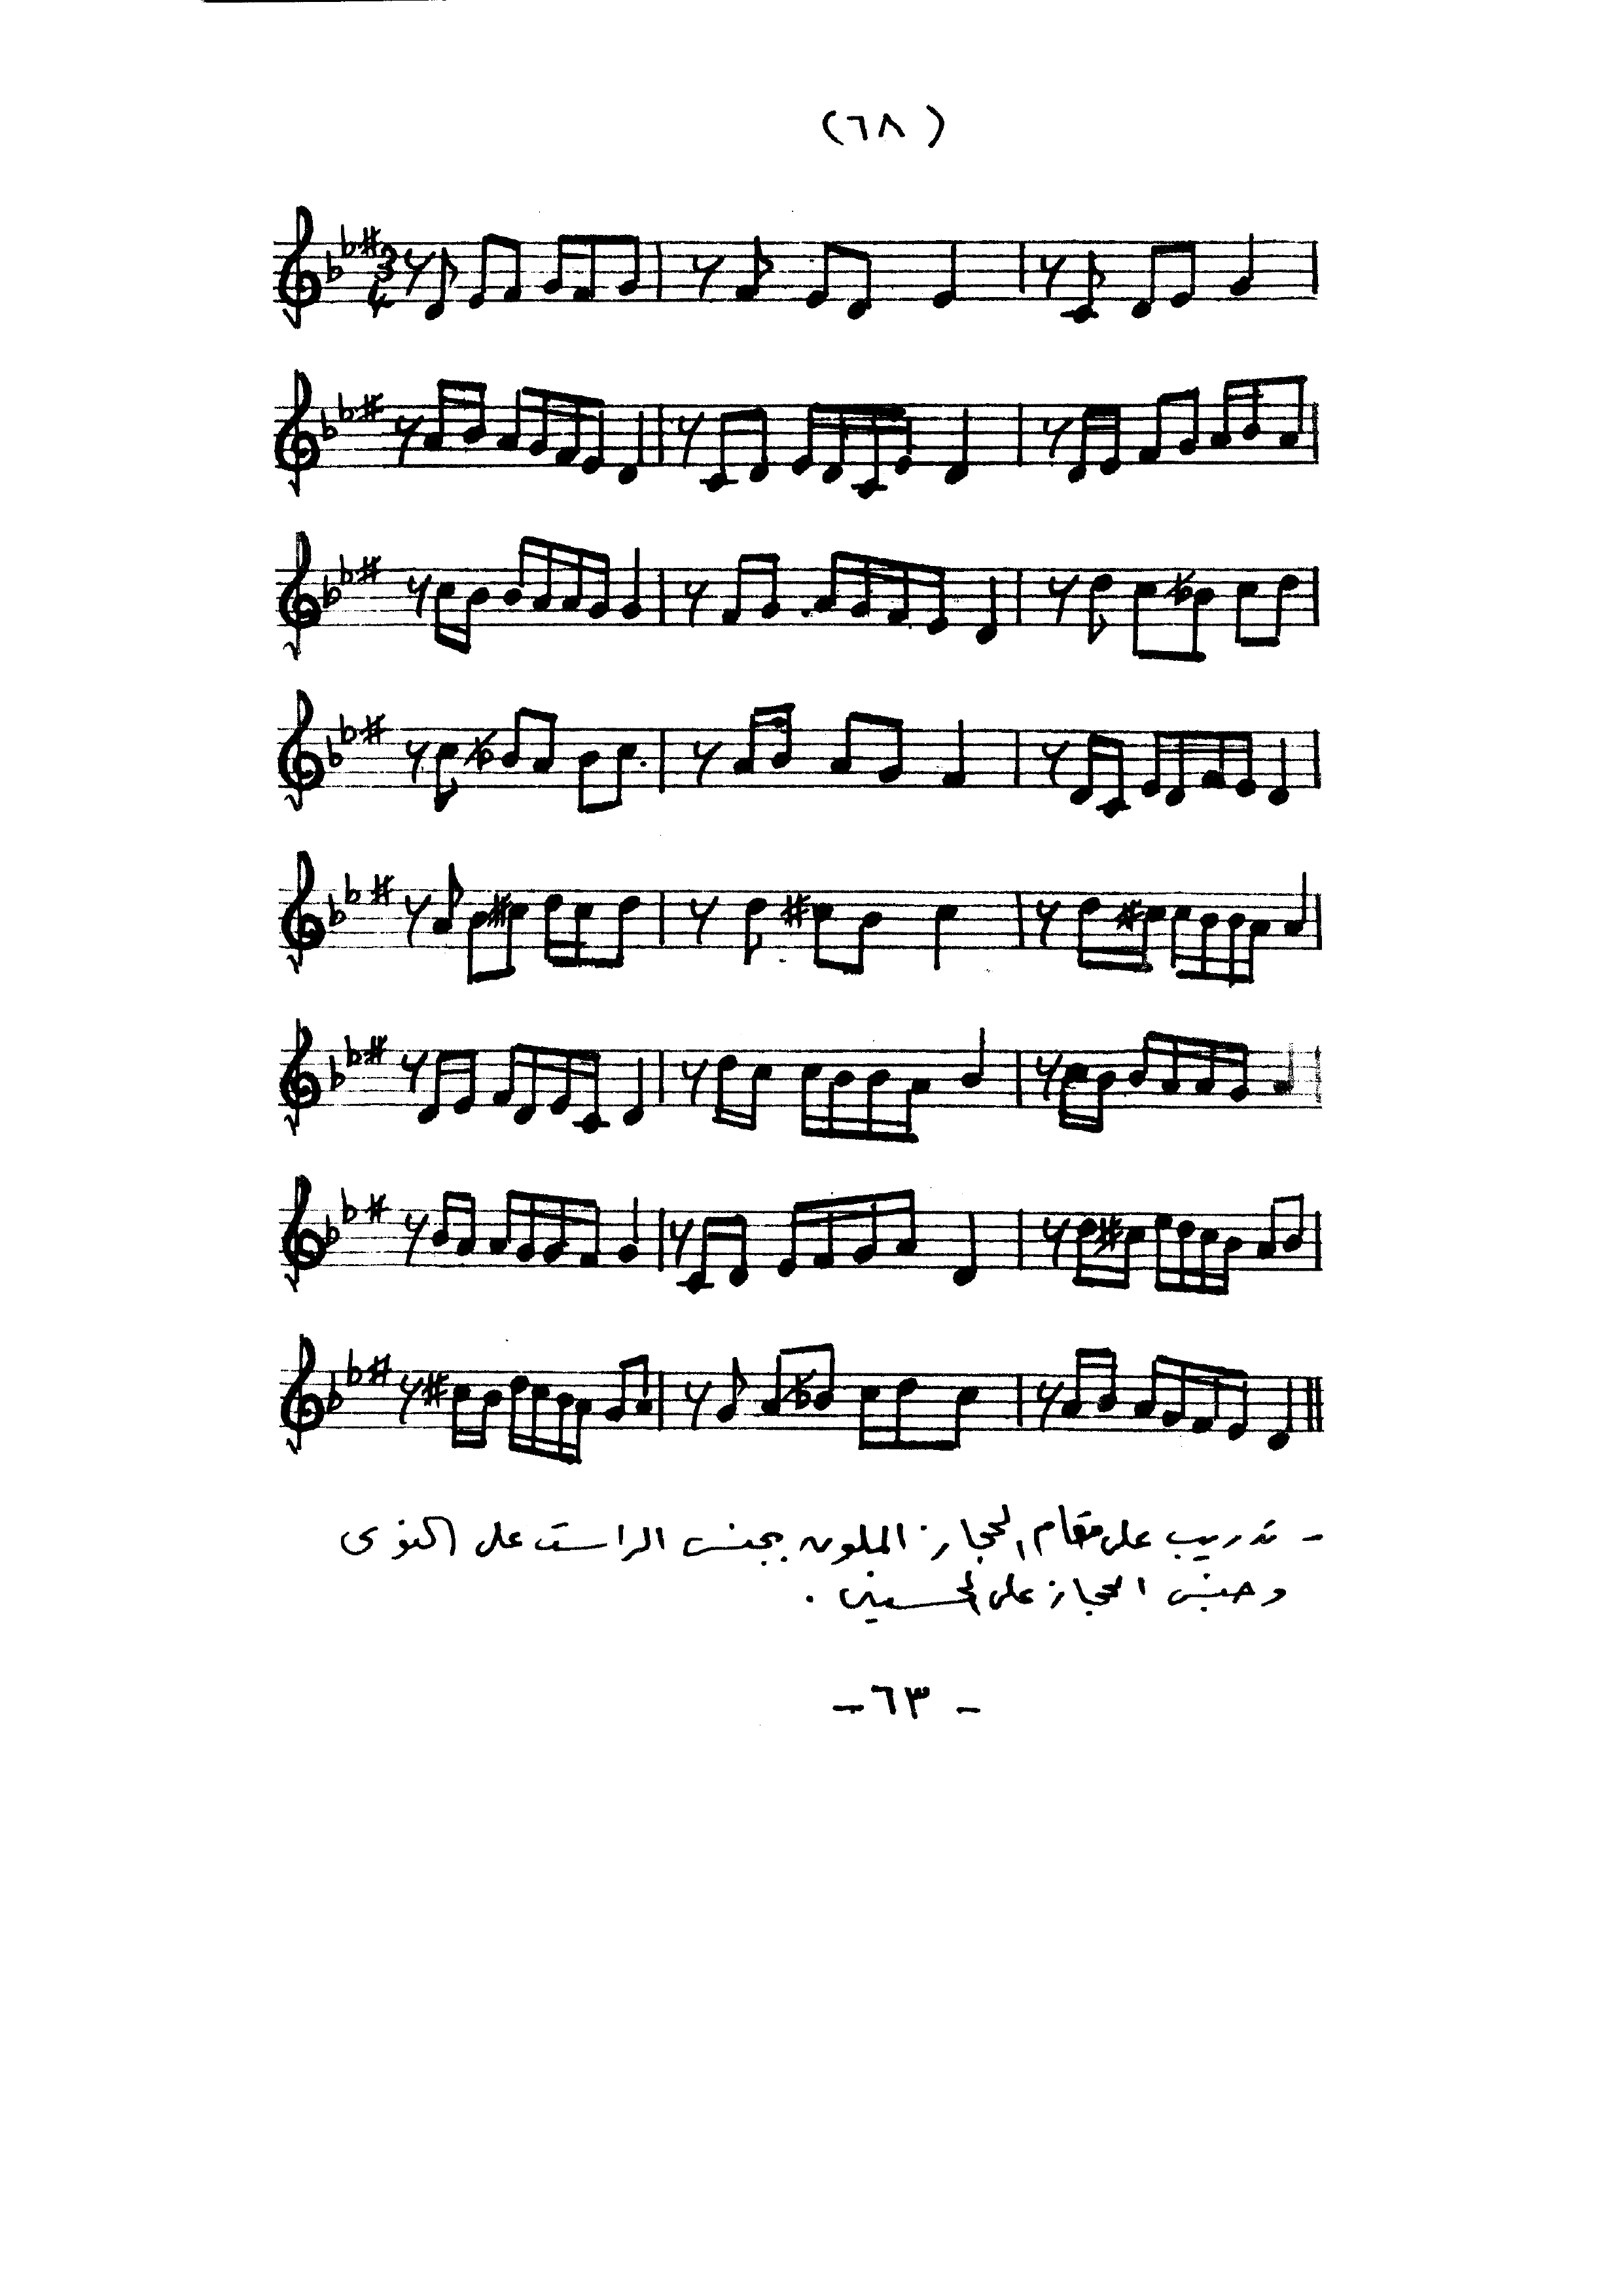 (٦٨)
3
4
- تدريب على مقام الحجاز الملون بجنس الراست على النوى
وجنس الحجاز على الحسيني .
- ٦٣ -